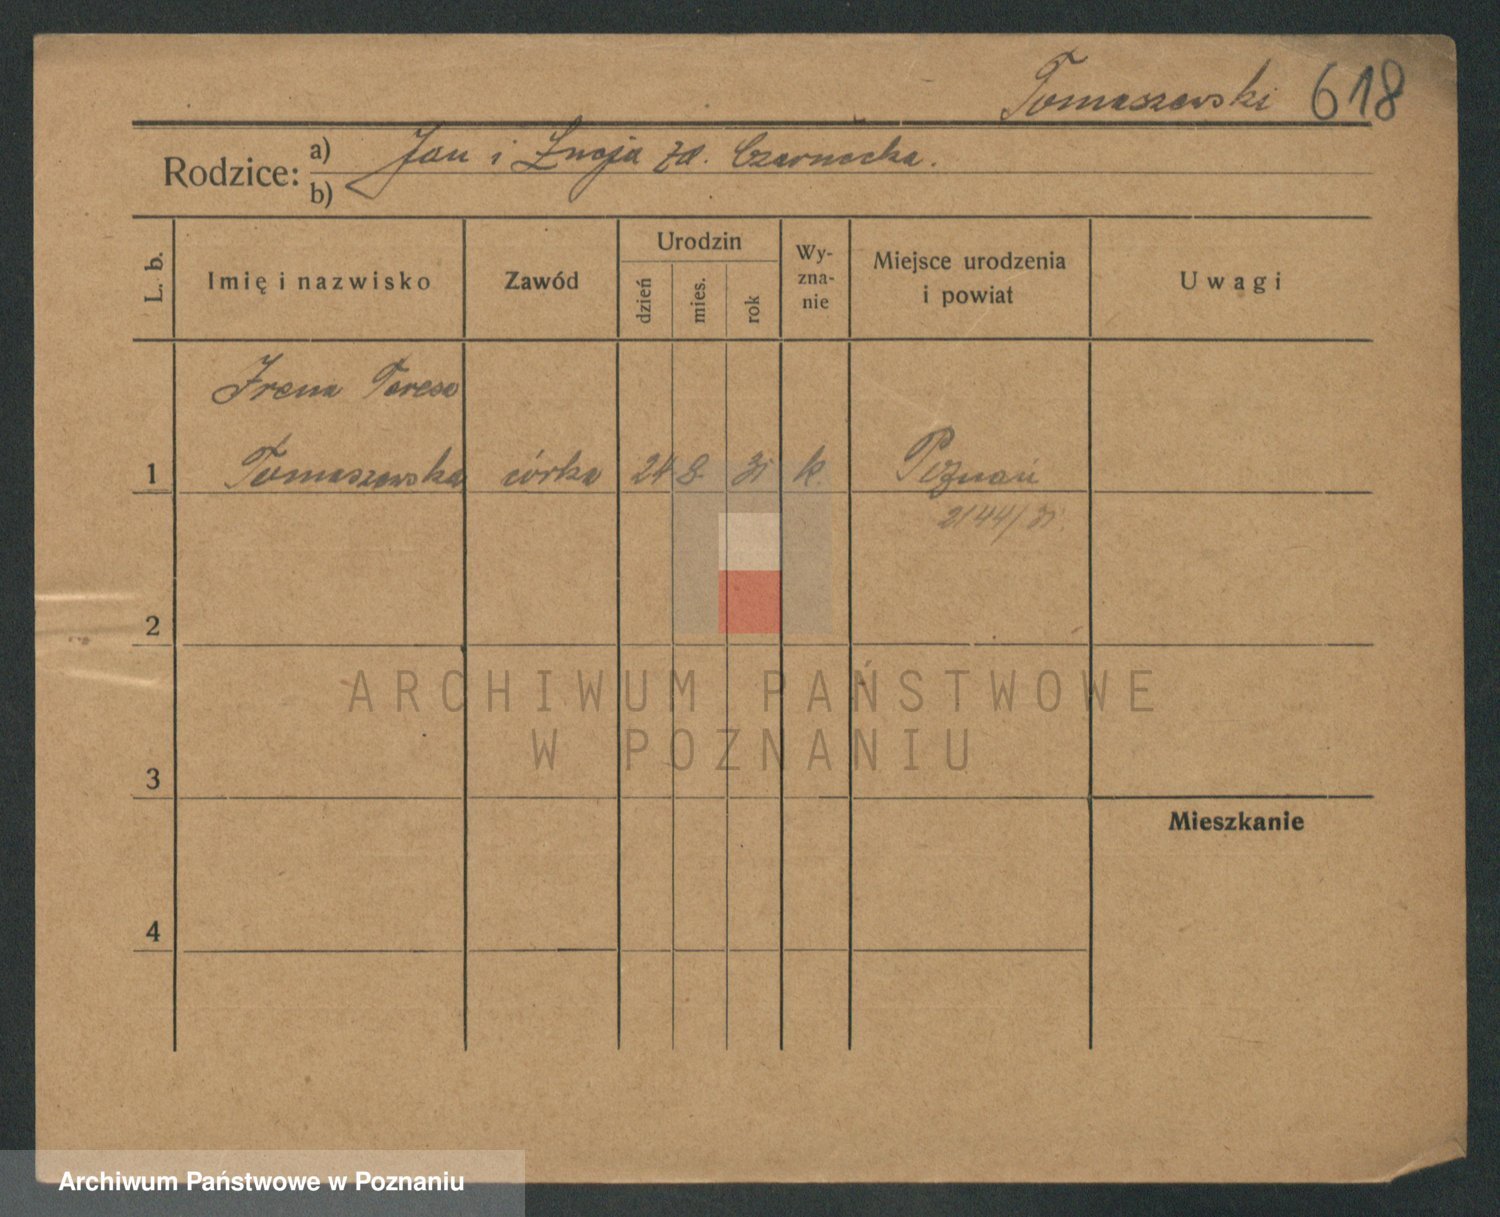 Tomaszewski 618
Rodzice: a) Jan i Łucja zd. Czarnecka.
b)
L. b.
Imię i nazwisko
Zawód
Urodzin
dzień
mies.
rok
Wy-
zna-
nie
Miejsce urodzenia
i powiat
Uwagi
Irena Teresa
1 Tomaszewska córka 24 8 31 k. Poznań
2144/31.
2
3
4
Mieszkanie
ARCHIWUM PAŃSTWOWE
W POZNANIU
Archiwum Państwowe w Poznaniu